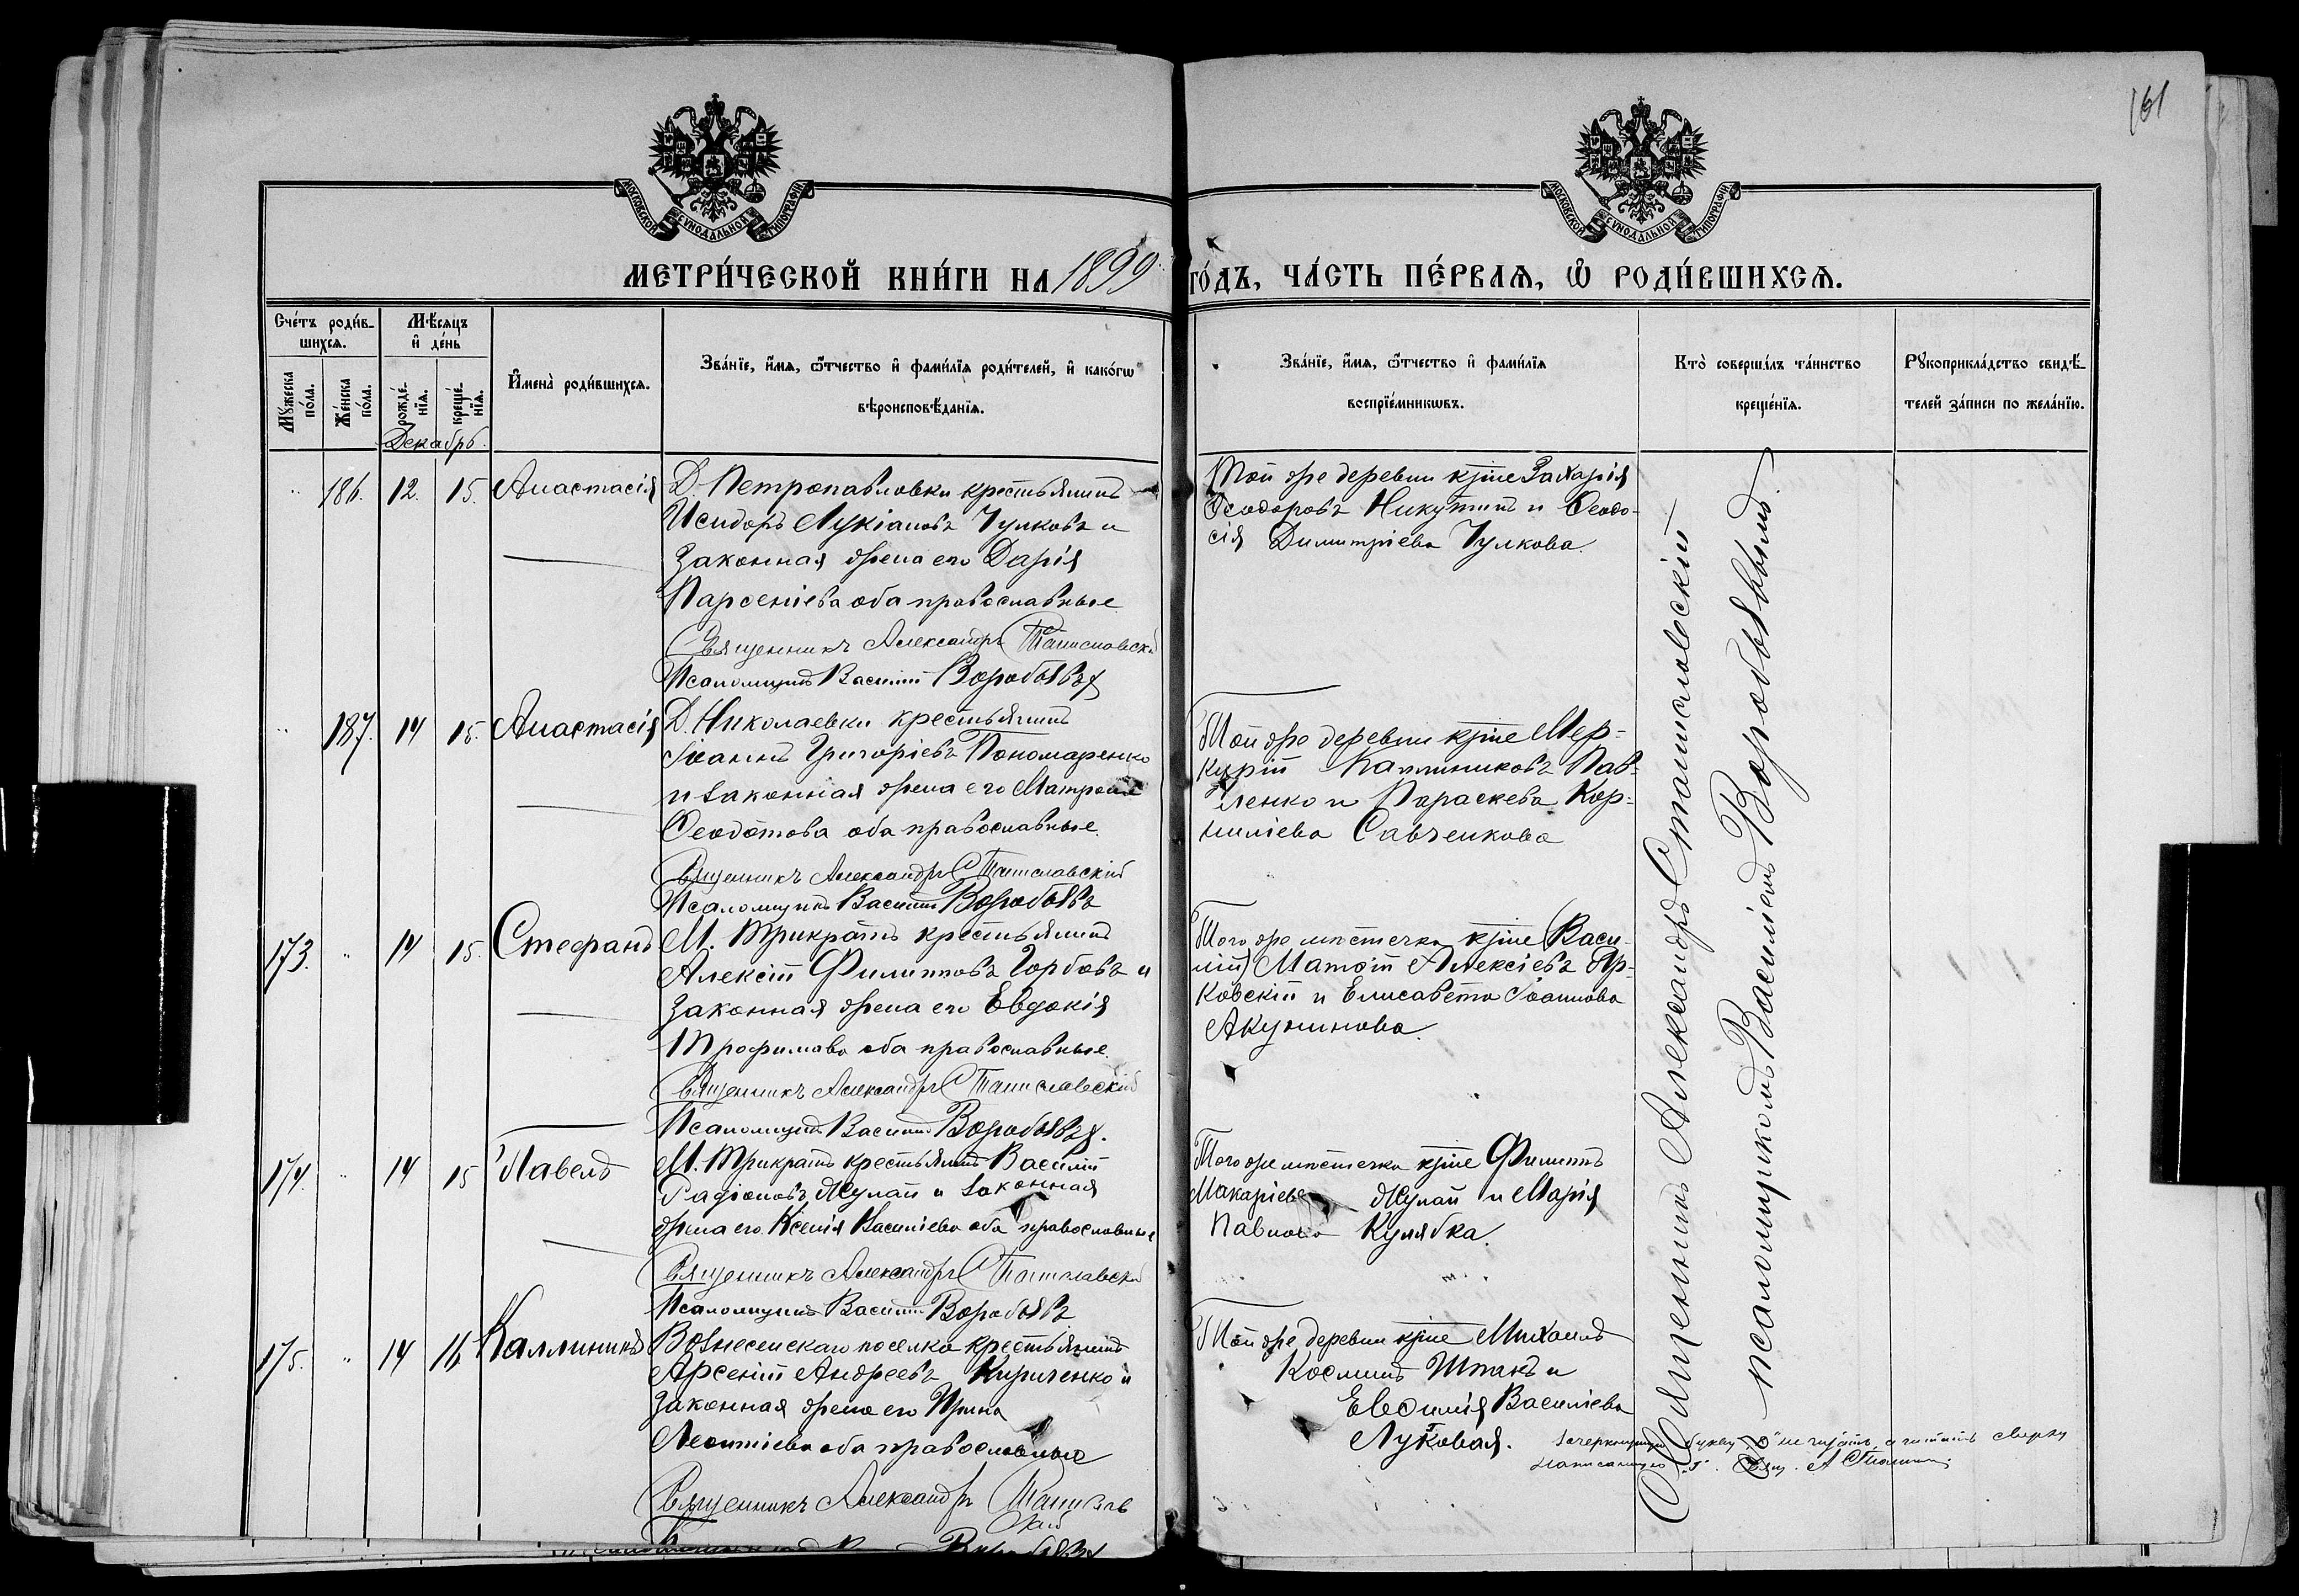 161
МОСКОВСКОЙ СѴНОДАЛЬНОЙ ТИПОГРАФІИ
МОСКОВСКОЙ СѴНОДАЛЬНОЙ ТИПОГРАФІИ
МЕТРИ́ЧЕСКОЙ КНИ́ГИ НА 1899 ГО́ДЪ, ЧА́СТЬ ПЕ́РВАѦ, Ѡ҆ РОДИ́ВШИХСѦ.
Сче́тъ роди́в-
шихсѧ.
Мꙋ́жеска по́ла.
Же́нска по́ла.
Мѣ́сѧцъ
и҆ де́нь
рожде́-
нїѧ.
креще́-
нїѧ.
Декабрь.
И҆мена̀ роди́вшихсѧ.
Зва́нїе, и҆́мѧ, ѻ҆́тчество и҆ фами́лїѧ роди́телей, и҆ како́гѡ
вѣроисповѣ́данїѧ.
Зва́нїе, и҆́мѧ, ѻ҆́тчество и҆ фами́лїѧ
воспрїе́мникѡвъ.
Кто̀ соверша́лъ та́инство
креще́нїѧ.
Рꙋкоприкла́дство свидѣ́-
телей за́писи по жела́нїю.
186. 12. 15. Анастасія
Д. Петропавловки крестьянинъ
Исидоръ Лукіановъ Чулковъ и
законная жена его Дарія
Парѳеніева оба православные
Священникъ Александръ Станиславскій
Псаломщикъ Василій Воробьевъ
Той же деревни кр̅не Захарія
Ѳеодоровъ Никутинъ и Ѳеодо-
сія Димитріева Чулкова.
187. 14 15. Анастасія
Д. Николаевки крестьянинъ
Іоаннъ Григоріевъ Пономаренко
и законная жена его Матрона
Ѳеодотова оба православные.
Священникъ Александръ Станиславскій
Псаломщикъ Василій Воробьевъ
Той же деревни кр̅не Мер-
курій Каллиниковъ Пав-
ленко и Параскева Кор-
ниліева Савченкова
173. 14 15. Стефанъ
М. Трикратъ крестьянинъ
Алексій Филипповъ Горбовъ и
законная жена его Евдокія
Трофимова оба православные.
Священникъ Александръ Станиславскій
Псаломщикъ Василій Воробьевъ.
Того же мѣстечка кр̅не (Васи-
лій) Матѳій Алексіевъ Яр-
ковскій и Елисавета Іоаннова
Акунинова.
174. 14 15 Павелъ
М. Трикратъ крестьянинъ Василій
Радіоновъ Жулай и законная
жена его Ксенія Василіева оба православные
Священникъ Александръ Станиславскій
Псаломщикъ Василій Воробьевъ
Того же мѣстечка кр̅не Филиппъ
Макаріевъ Жулай и Марія
Павлова Кулябка.
175. 14 16 Каллиникъ
Вознесенскаго поселка крестьянинъ
Арсеній Андреевъ Кириченко и
законная жена его Ирина
Леонтіева оба православные
Священникъ Александръ Станислав
скій
Той же деревни кр̅не Михаилъ
Косминъ Шпакъ и
Евѳимія Василіева
Луговая.
Зачеркнутую букву „к" не читать, а читать сверху
написанную „г". Свящ. А Станисл
Священникъ Александръ Станиславскій
съ псаломщикомъ Василіемъ Воробьевымъ.